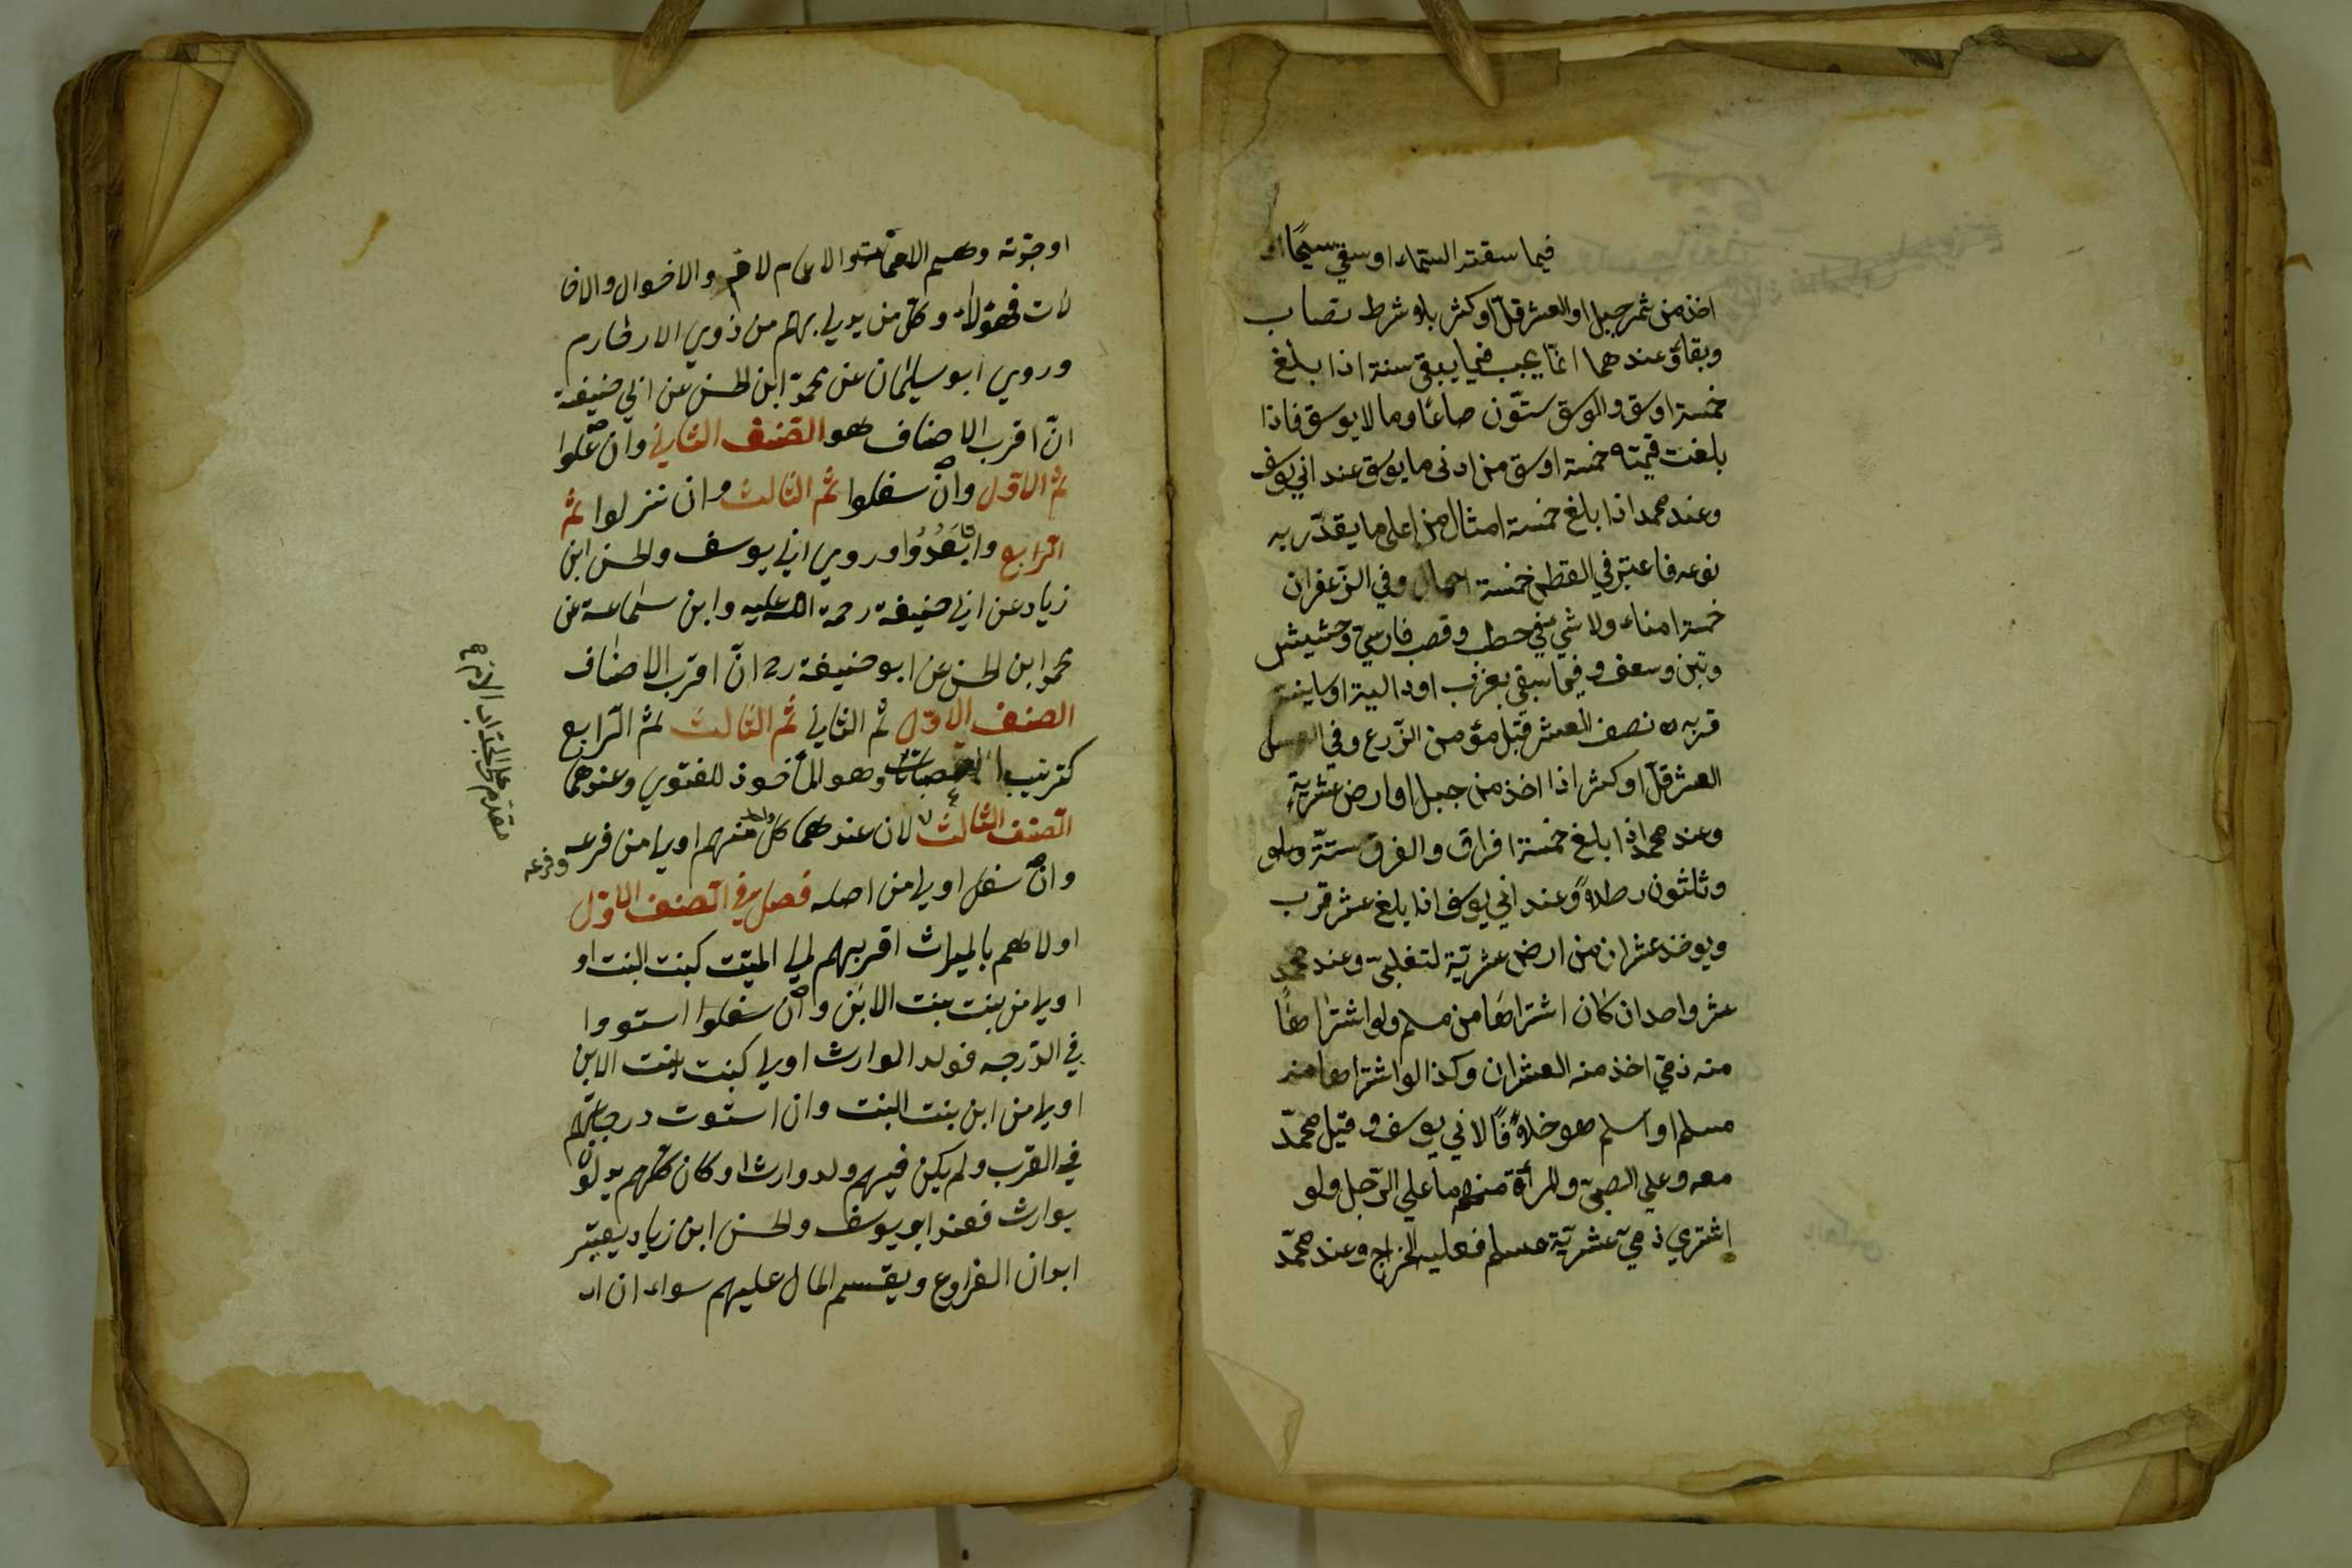 فيما سقته السماء او سقي سيحًا او
اخذ من ثمر جبل او العشر قلّ او كثر بلا شرط نصاب
وبقاؤ عندهما انمّا يجب فيما يبقى سنة اذا بلغ
خمسة اوسق والوسق ستّون صاعًا وما لا يوسق فاذا
بلغت قيمته خمسة اوسق من ادنى ما يوسق عند ابي يوسف
وعند محمد اذا بلغ خمسة امثال من اعلى ما يقدّر به
نوعه فاعتبر في القطن خمسة احمال وفي الزّعفران
خمسة امناء ولا شيء في حطب وقصب فارسيّ وحشيش
وتبن وسعف وفيما سقي بغرب او دالية او سانية
قربه نصف العشر قبل مؤمن الزّرع وفي العسل
العشر قلّ او كثر اذا اخذ من جبل او ارض عشريّة
وعند محمد اذا بلغ خمسة افراق والفرق ستّة
وثلثون رطلاً وعند ابي يوسف اذا بلغ عشر قرب
ويوخذ عشران من ارض عشريّة لتغلبيّ وعند محمد
عشر واحد ان كان اشتراها من مسلم ولو اشتراها
منه ذميّ اخذ منه العشران وكذا لو اشتراها منه
مسلم او اسلم هو خلافًا لابي يوسف وقيل محمّد
معه وعلي الصبيّ والمرأة منهم ما علي الرّجل ولو
اشتري ذميّ عشريّة مسلم فعليه الخراج وعند محمّد
او جدّته وهم الاعمام لام والاخوال والخا
لات فهؤلاء وكل من يدلي بهم من ذوي الارحام
وروي ابو سليمان عن محمد ابن الحسن عن ابي حنيفة
انّ اقرب الاصناف هو الصّنف الثاني وان علوا
ثم الاوّل وان سفلوا ثم الثالث وان نزلوا ثم
الرّابع وان بَعُدُوا وروي ابي يوسف والحسن ابن
زياد عن ابي حنيفة رحمة الله عليه وابن سماعة عن
محمد ابن الحسن عن ابو حنيفة رح انّ اقرب الاصناف
الصنف الاوّل ثم الثاني ثم الثالث ثم الرّابع
كترتيب العصبات وهو المأخوذ للفتوي وعندهما
الصّنف الثالث لان عندهما كل واحد منهم اولي من فرعه وفرعه
وان سفل اولي من اصله فصل في الصّنف الاوّل
اولاهم بالميراث اقربهم الي الميّت كبنت البنت او
اولي من بنت بنت الابن وان سفلوا استووا
في الدّرجه فولد الوارث اولي كبنت بنت الابن
اولي من ابن بنت البنت وان استوت درجاتهم
في القرب ولم يكن فيهم ولد وارث او كان كلّهم يدلون
بوارث فعند ابو يوسف والحسن ابن زياد يعتبر
ابدان الفراوع ويقسم المال عليهم سواء ان
مقدم على الجدّ اب الام